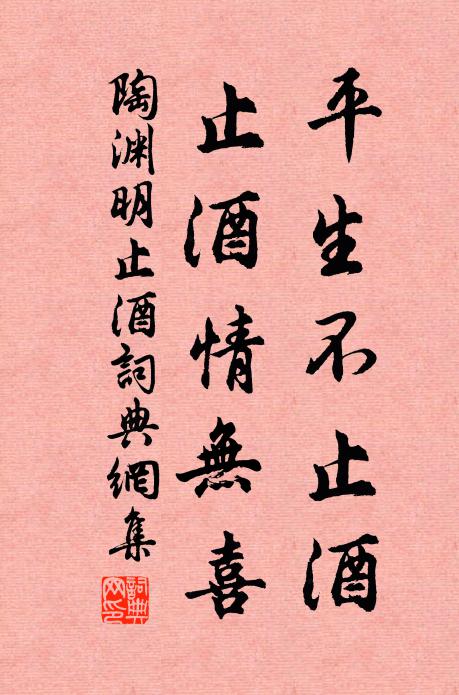 平生不止酒
止酒情無喜
陶渊明止酒詞典網集
詞典网印